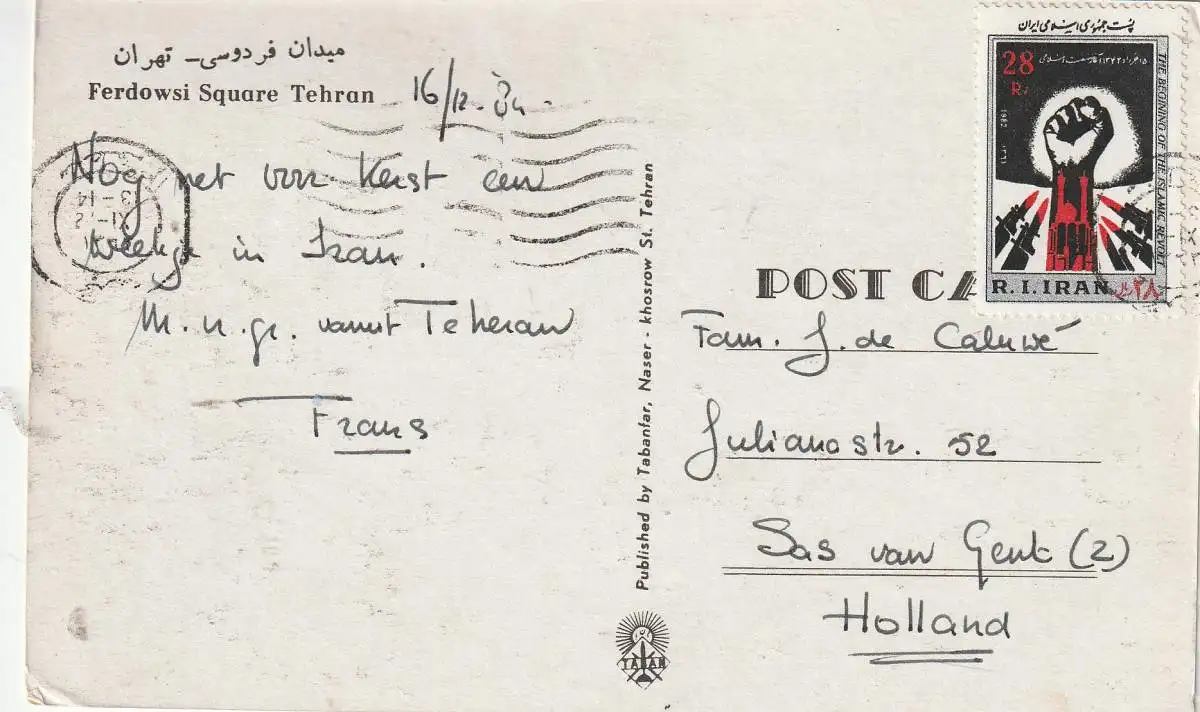 میدان فردوسی - تهران
Ferdowsi Square Tehran
16/12-84-
Nog net voor Kerst een
weekje in Iran.
M.v.gr. vanuit Teheran
Frans
Published by Tabanfar, Naser - khosrow St. Tehran
TABAN
پست جمهوری اسلامی ایران
28
R.
1982
THE BEGINING OF THE ISLAMIC REVOLT
R.I.IRAN
۲۸ ریال
POST CA
Fam. J. de Caluwé
Julianastr. 52
Sas van Gent (Z)
Holland